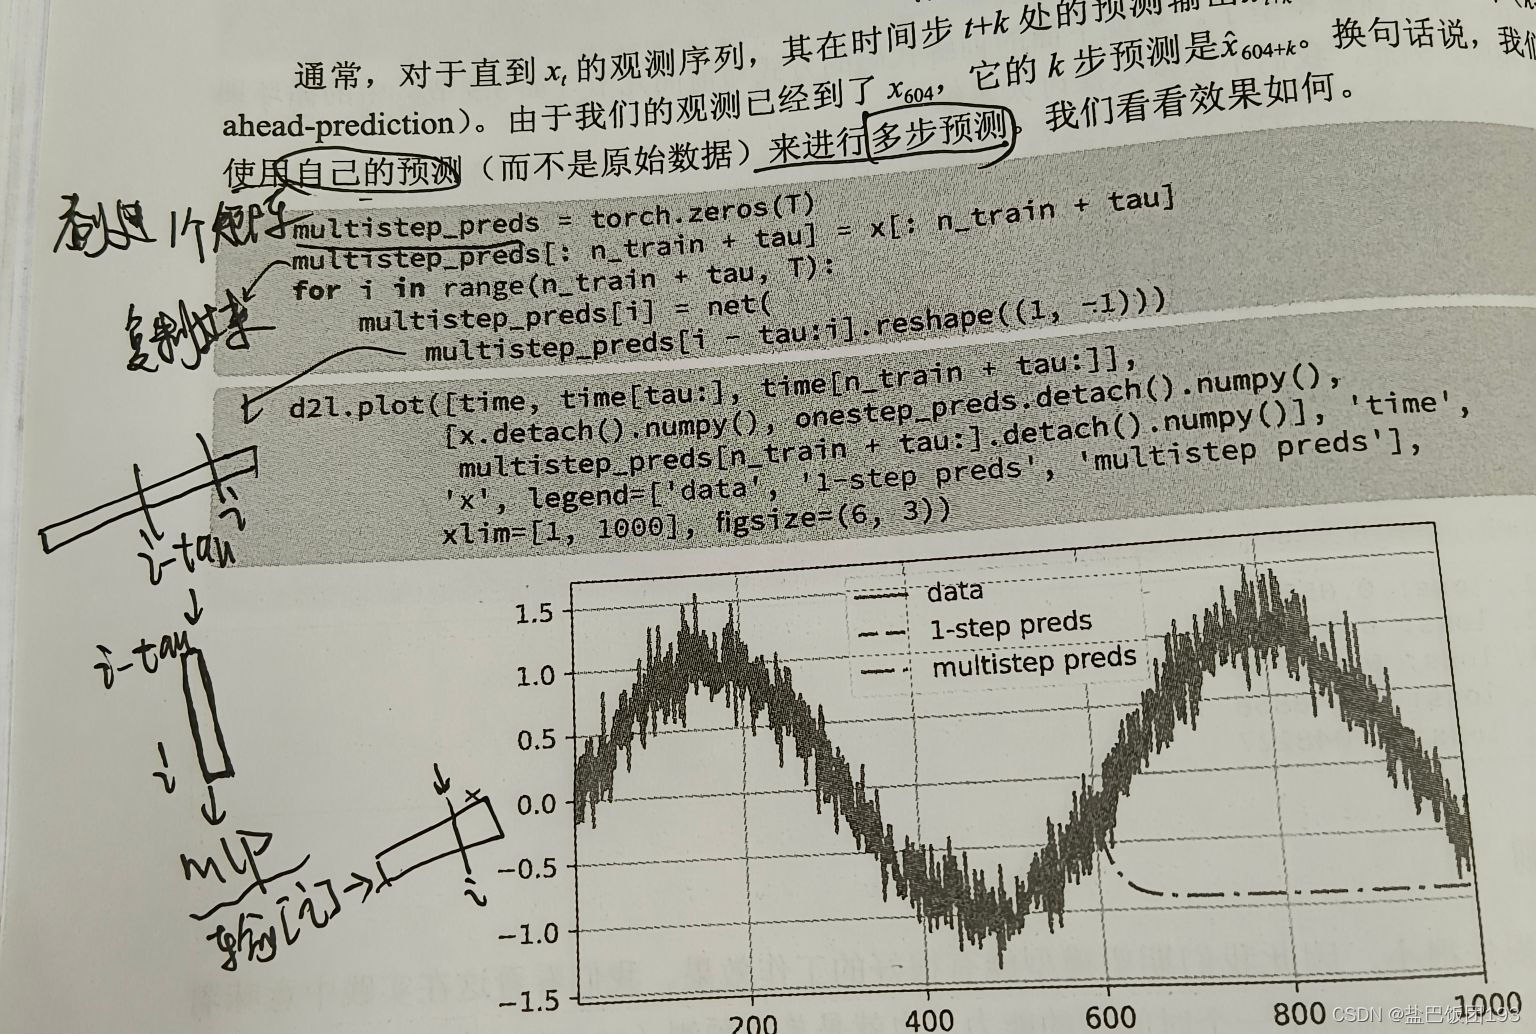 通常，对于直到 xt 的观测序列，其在时间步 t+k 处的预测输出
ahead-prediction）。由于我们的观测已经到了 x604，它的 k 步预测是x̂604+k。换句话说，我们
使用自己的预测（而不是原始数据）来进行多步预测。我们看看效果如何。
multistep_preds = torch.zeros(T)
multistep_preds[: n_train + tau] = x[: n_train + tau]
for i in range(n_train + tau, T):
multistep_preds[i] = net(
multistep_preds[i - tau:i].reshape((1, -1)))
1个矩阵
复制
d2l.plot([time, time[tau:], time[n_train + tau:]],
[x.detach().numpy(), onestep_preds.detach().numpy(),
multistep_preds[n_train + tau:].detach().numpy()], 'time',
'x', legend=['data', '1-step preds', 'multistep preds'],
xlim=[1, 1000], figsize=(6, 3))
i
i-tau
i-tau
i
mlp
输[i]
i
data
1-step preds
multistep preds
1.5
1.0
0.5
0.0
−0.5
−1.0
−1.5
200
400
600
800
1000
CSDN @盐巴饭团193